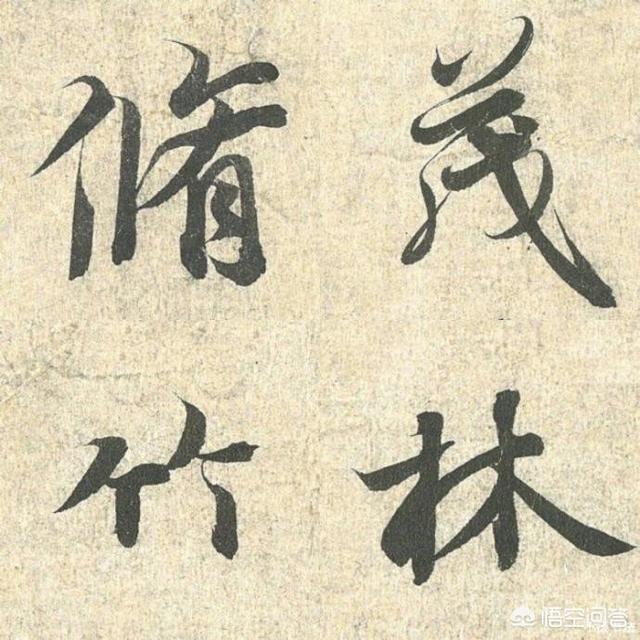 茂林
脩竹
悟空问答